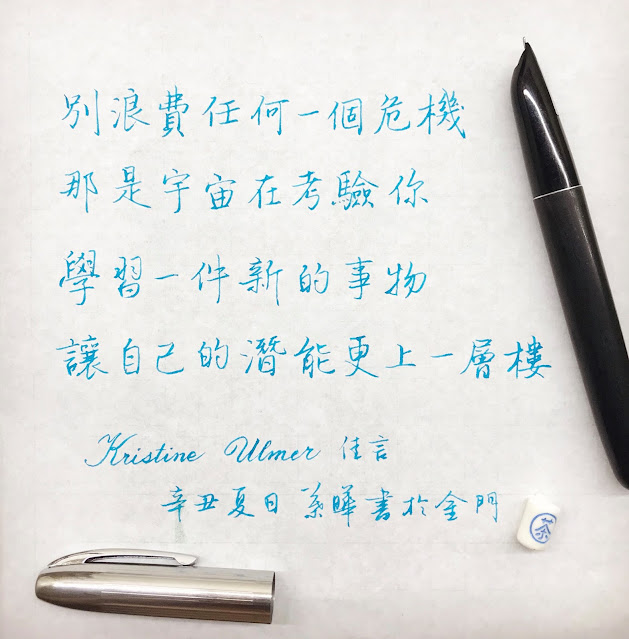 別浪費任何一個危機
那是宇宙在考驗你
學習一件新的事物
讓自己的潛能更上一層樓
Kristine Ulmer 佳言
辛丑夏日 葉曄書於金門
茶